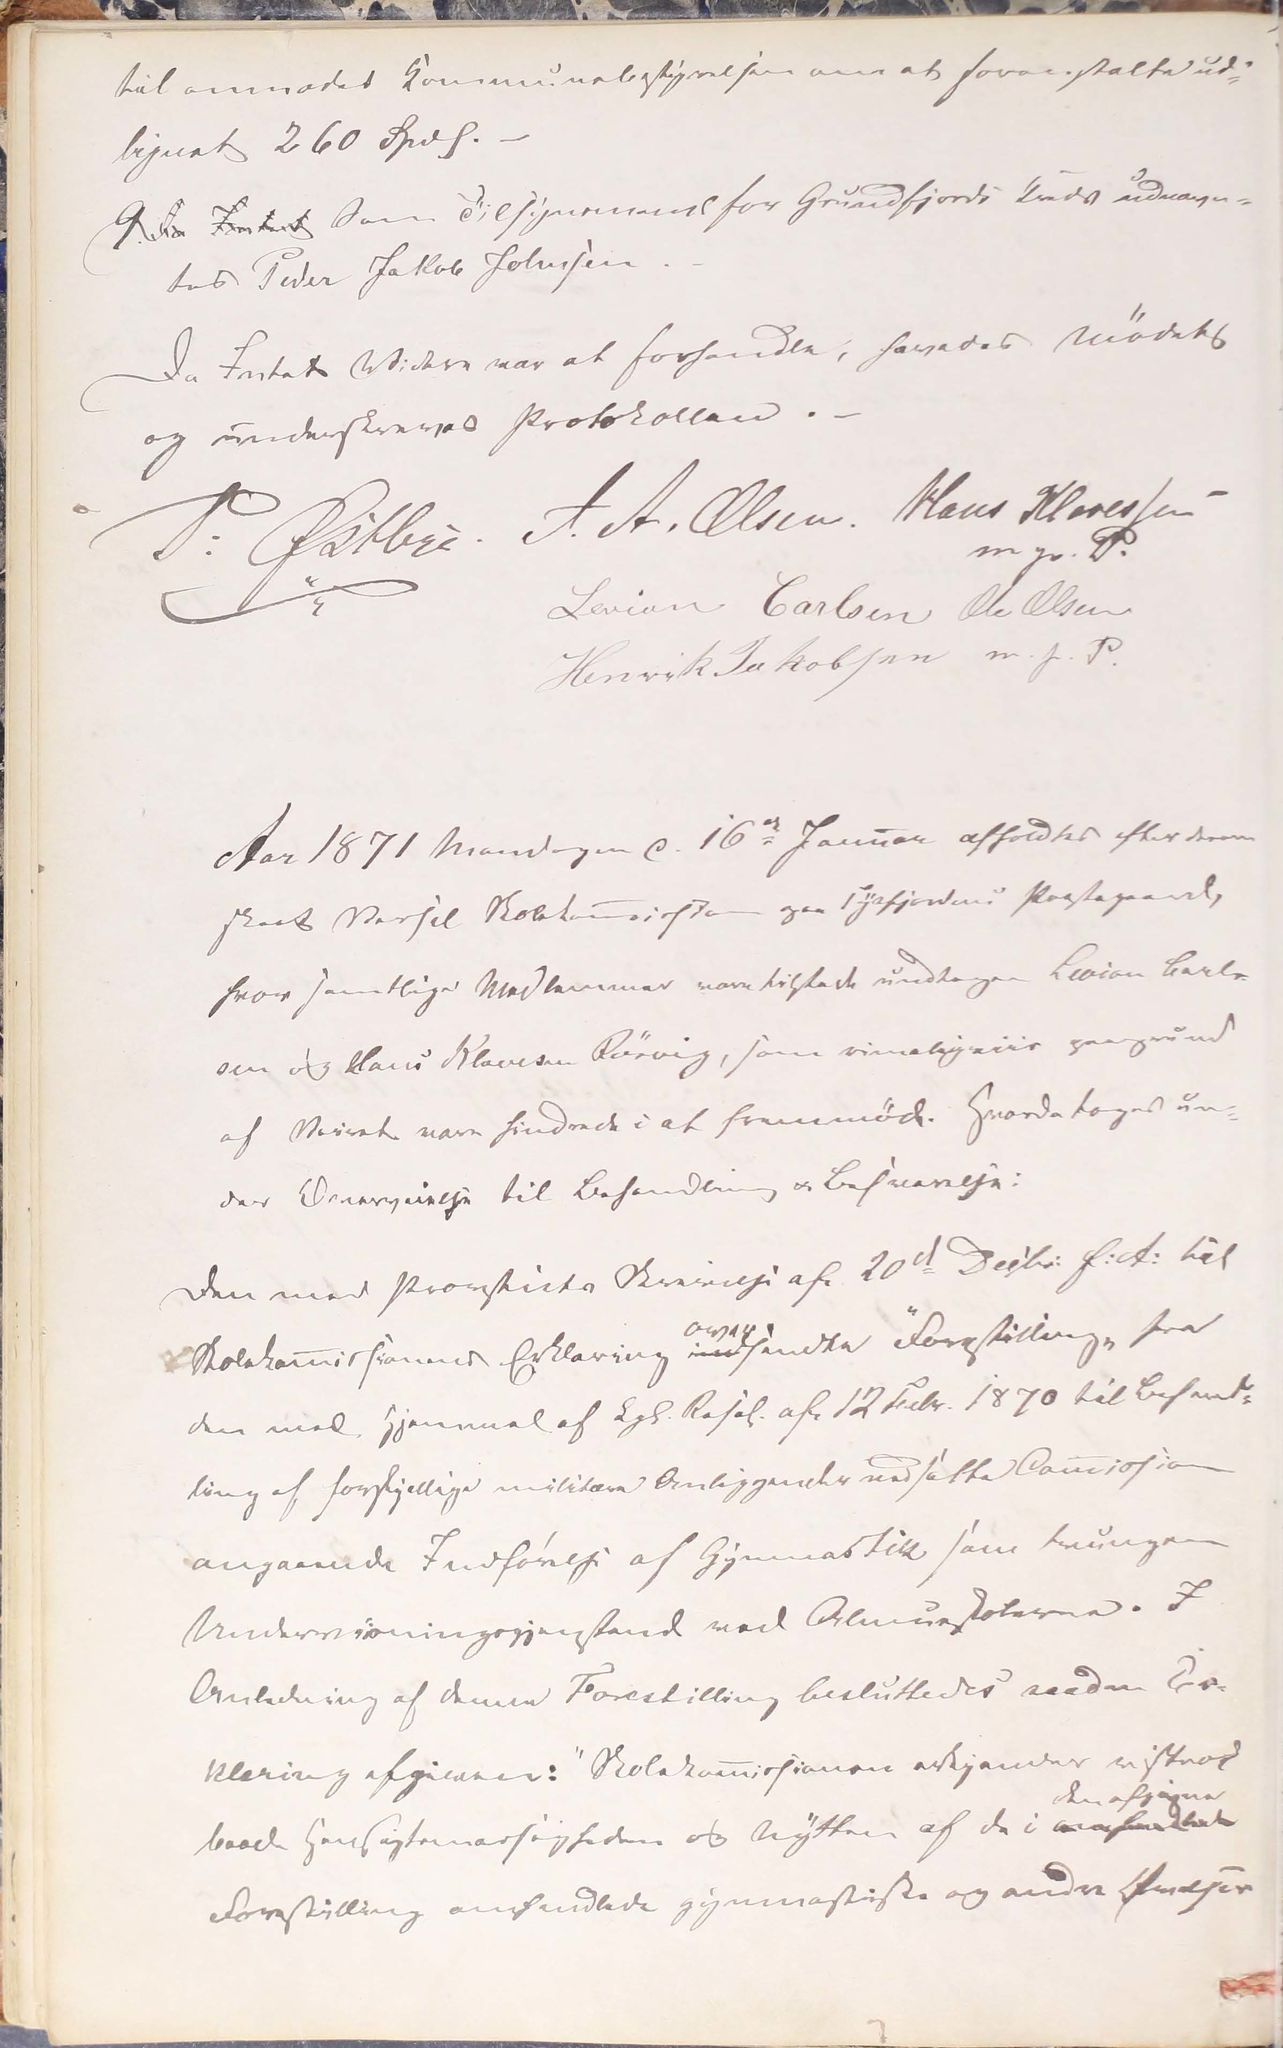 til anmodes Kommunebestyrelsen om at foranstalte ud-
lignet 260 Spds. -
9. Som Tilsynsmand for Grundfjords Kreds udnævn-
tes Peder Jakob Johnsen. -
Da Intet videre var at forhandle, hævedes Mödets
og underskreves Protokollen. -
P: Østbye. A. A. Olsen. Hans Klavessen
m. p. P.
Levion Carlsen Ole Olsen
Henrik Jakobsen m. p. P.
Aar 1871 Mandagen d. 16de Januar afholdtes efter derom
skeet Varsel Skolekommission paa Tysfjordens Præstegaard,
hvor samtlige Medlemmer vare tilstede undtagen Levion Carl-
sen og Hans Klavesen Rörvig, som rimeligviis paagrund
af Veiret vare hindrede i at fremmöde. Hvorda toges un-
der Overveielse til Behandling & Besvarelse:
Den med Provstiets Skrivelse af 20d Decbr: f: A: til
Skolekommissionens Erklæring oversendte "Forestilling" fra
den med Hjemmel af Kgl. Resol. af 12 Febr. 1870 til Behand-
ling af forskjellige militære Anliggender nedsatte Commission
angaaende Indförelse af Gymnastik som tvungen
Undervisningsgjenstand ved Almueskolerne. I
Anledning af denne Forestilling besluttedes saadan Er-
klæring afgiven: "Skolekommissionen erkjender vistnok
baade Hensigtsmæssigheden og Nytten af de i den afgivne
Forestilling omhandlede gymnastiske og andre Øvelser